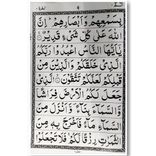 بِسَمْعِهِمْ وَاَبْصَارِهِمْ ؕ اِنَّ
اللّٰهَ عَلٰى كُلِّ شَيْءٍ قَدِيْرٌ
يٰۤاَيُّهَا النَّاسُ اعْبُدُوْا رَبَّكُمُ
الَّذِيْ خَلَقَكُمْ وَالَّذِيْنَ مِنْ
قَبْلِكُمْ لَعَلَّكُمْ تَتَّقُوْنَ الَّذِيْ
جَعَلَ لَكُمُ الْاَرْضَ فِرَاشًا وَّ
السَّمَآءَ بِنَآءً وَّاَنْزَلَ مِنَ
السَّمَآءِ مَآءً فَاَخْرَجَ بِهٖ مِنَ
الثَّمَرٰتِ رِزْقًا لَّكُمْ فَلَا تَجْعَلُوْا